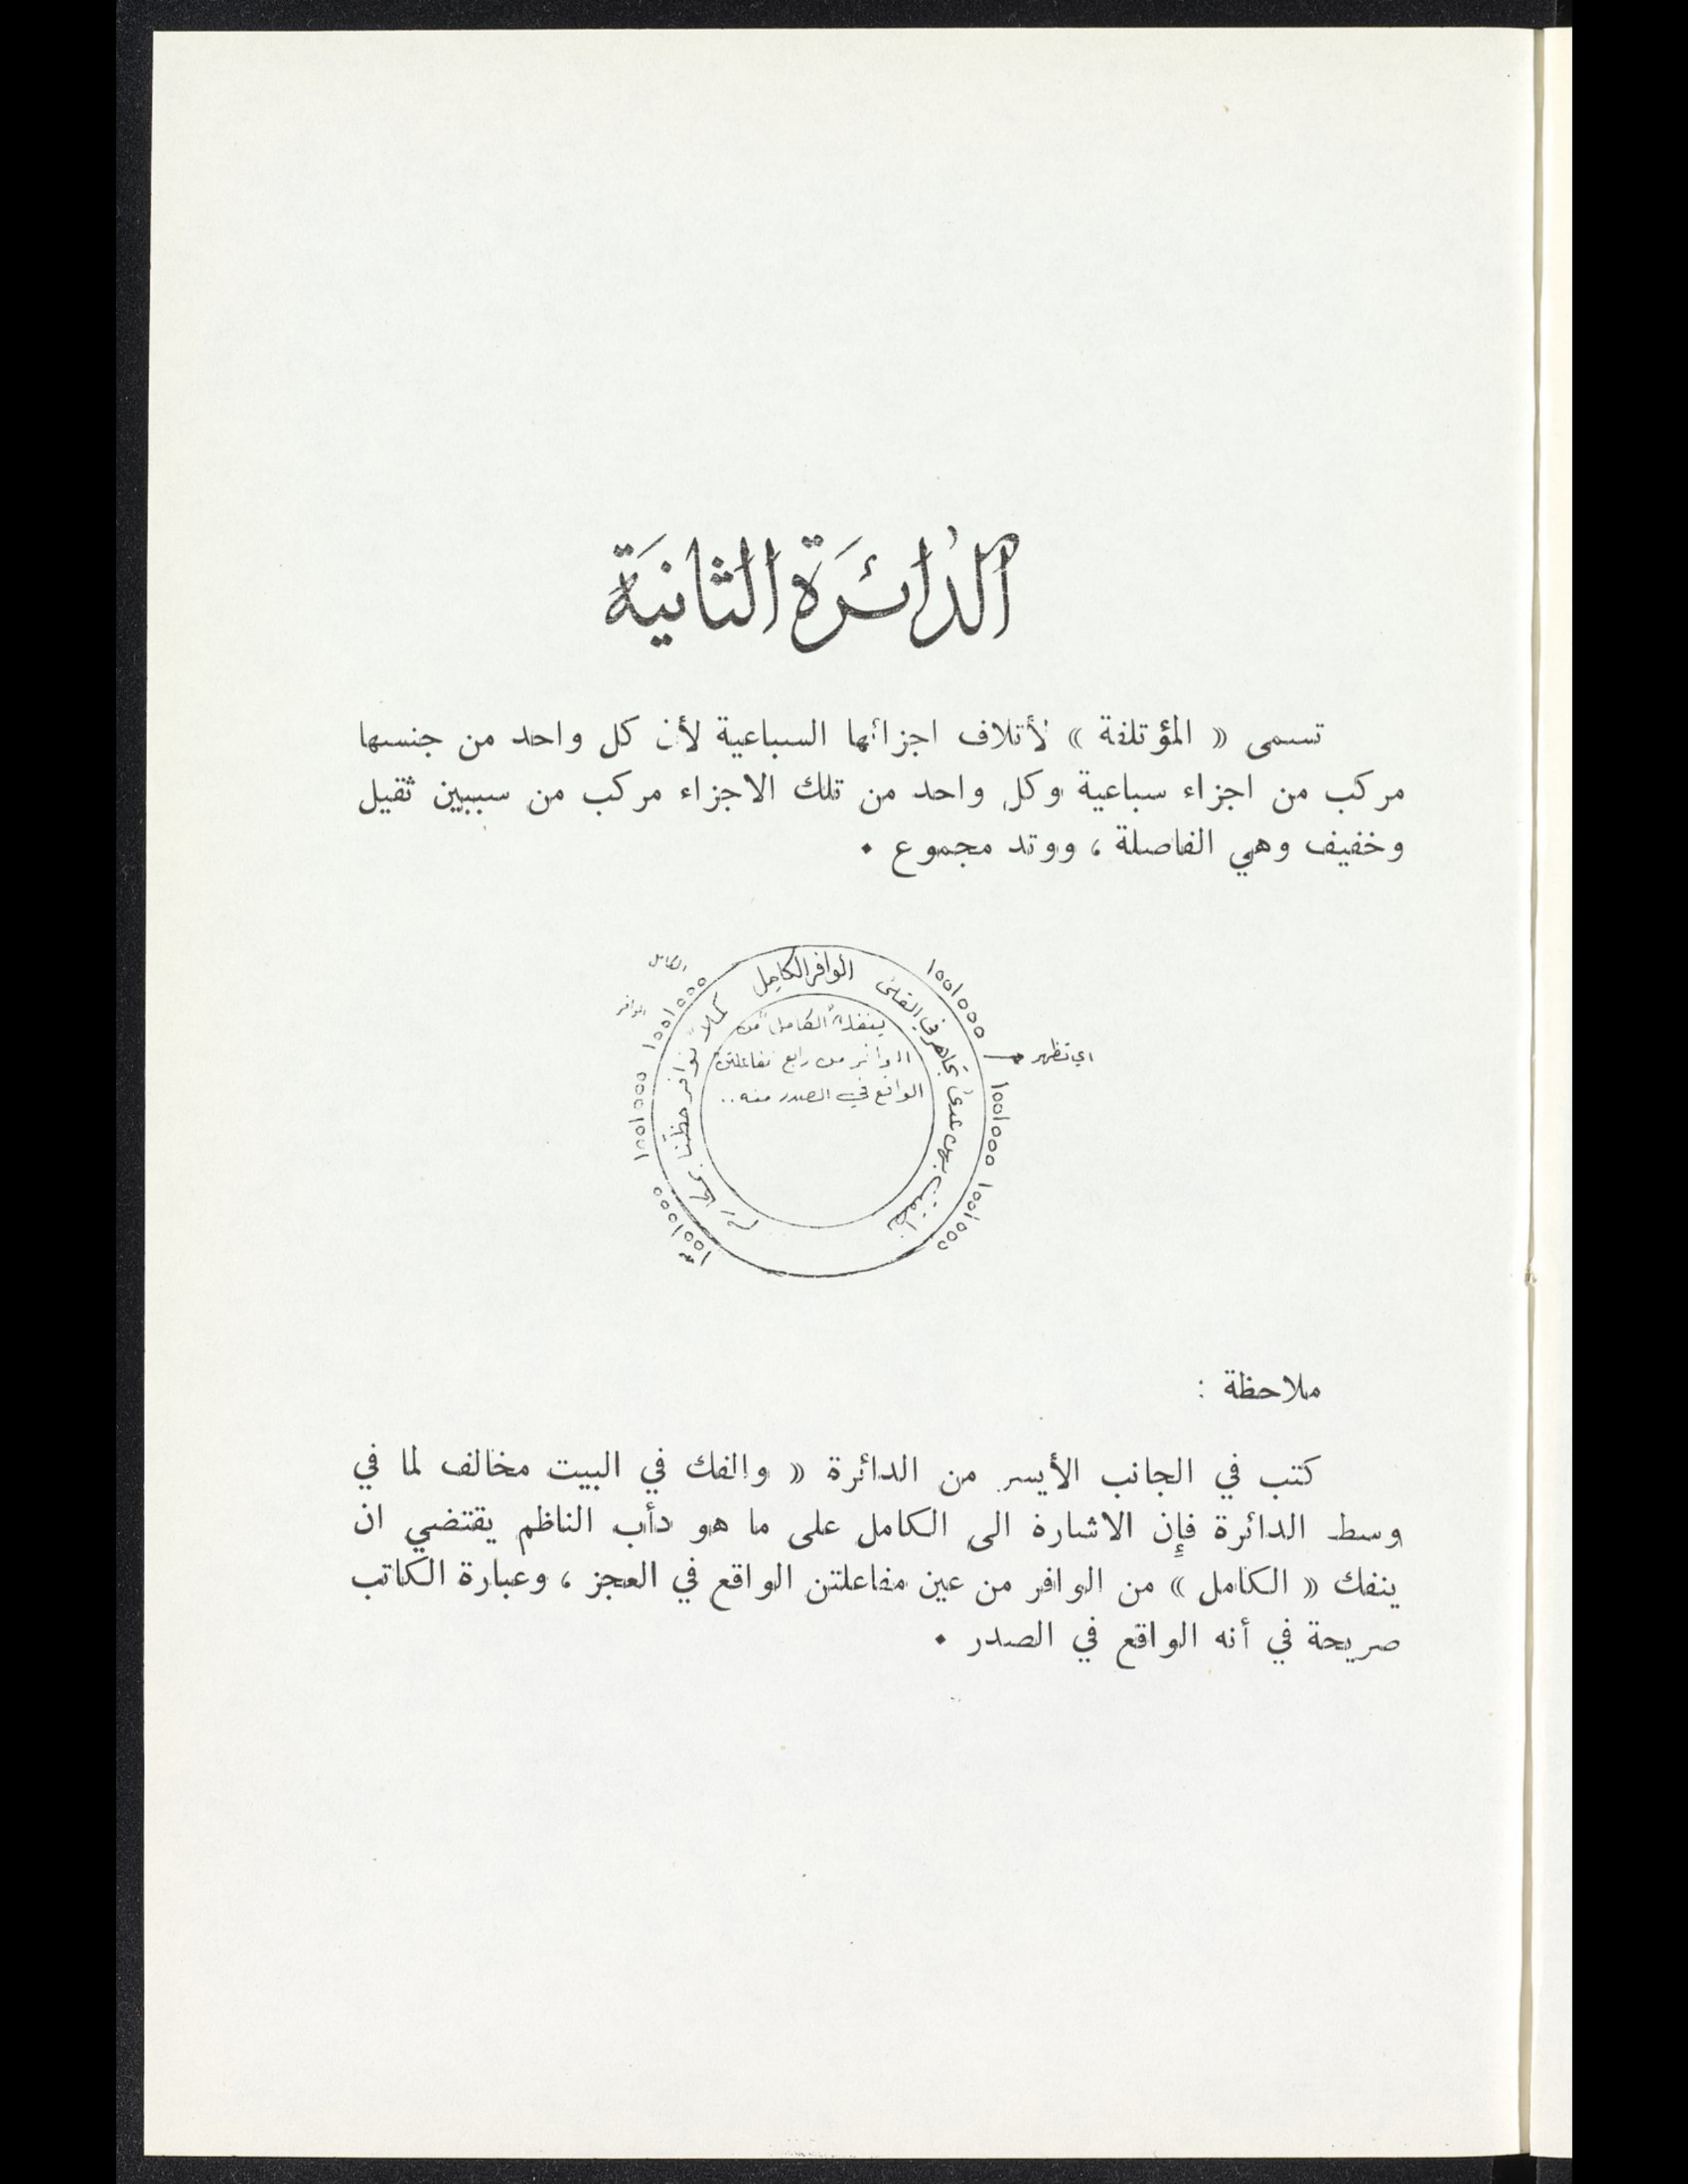 الدائرَة الثانيَة
تسمى « المؤتلفة » لأتلاف اجزائها السباعية لأن كل واحد من جنسها
مركب من اجزاء سباعية وكل واحد من تلك الاجزاء مركب من سببين ثقيل
وخفيف وهي الفاصلة ، ووتد مجموع •
الكامل
الوافر الكامل
الوافر
ينفك "الكامل" من
الوافر من رابع مفاعلتن
الواقع في الصدر منه ..
اي تظهر
كملا نوافر حظنا
في القلى
ملاحظة :
كتب في الجانب الأيسر من الدائرة « والفك في البيت مخالف لما في
وسط الدائرة فإن الاشارة الى الكامل على ما هو دأب الناظم يقتضي ان
ينفك « الكامل » من الوافر من عين مفاعلتن الواقع في العجز ، وعبارة الكاتب
صريحة في أنه الواقع في الصدر •